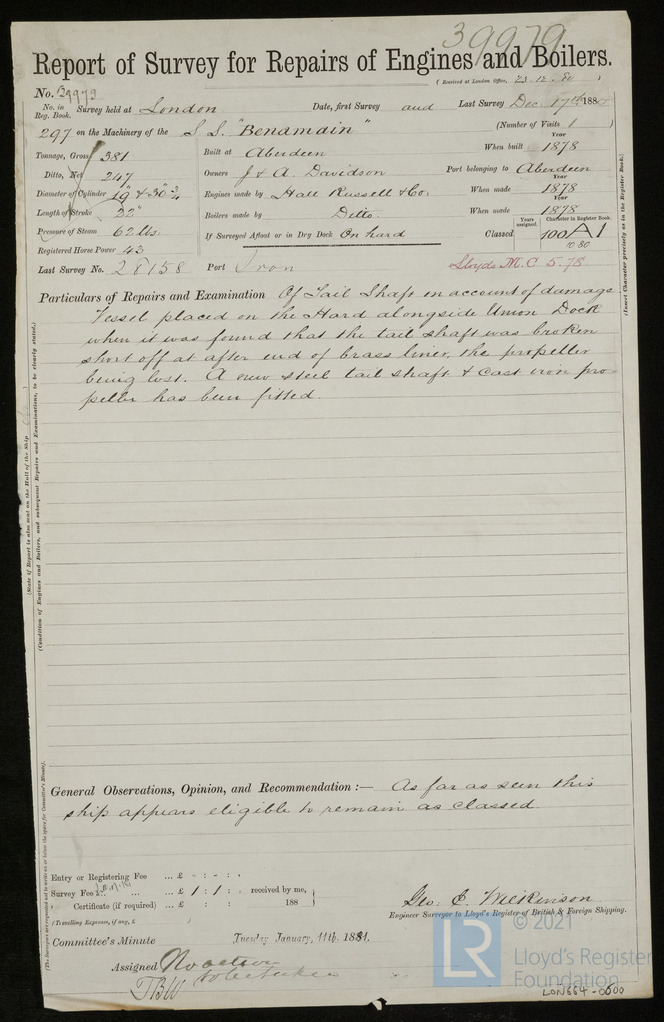 39979
Report of Survey for Repairs of Engines and Boilers.
(Received at London Office, 23.12.80)
No. 39979
No. in Reg. Book. Survey held at London Date, first Survey and Last Survey Dec 17th 1880
297 on the Machinery of the S.S. "Benamain" (Number of Visits 1)
Tonnage, Gross 381 Built at Aberdeen When built Year 1878
Ditto, Net 247 Owners J & A. Davidson Port belonging to Aberdeen
Diameter of Cylinder 19" & 36 3/4 Engines made by Hall Russell & Co. When made Year 1878
Length of Stroke 22" Boilers made by Ditto. When made Year 1878
Pressure of Steam 62 lbs. If Surveyed Afloat or in Dry Dock On hard Classed Years assigned. Character in Register Book. 100 A 1
10.80
Registered Horse Power 43
Last Survey No. 28158 Port Iron Lloyds M.C 5.78
Particulars of Repairs and Examination Of Tail Shaft on account of damage
Vessel placed on the Hard alongside Union Dock
when it was found that the tail shaft was broken
short off at after end of brass liner, the propeller
being lost. A new steel tail shaft & cast iron pro=
peller has been fitted.
(State if Report is also sent on the Hull of the Ship
(Condition of Engines and Boilers, and subsequent Repairs and Examinations, to be clearly stated.)
(Insert Character precisely as in the Register Book.)
General Observations, Opinion, and Recommendation :— As far as seen this
ship appears eligible to remain as classed.
(The Surveyors are requested not to write on or below the space for Committee's Minute.)
Entry or Registering Fee ... £ - : - : -
Survey Fee ... £ 1 : 1 : received by me,
" Certificate (if required) ... £ : : 188
(Travelling Expenses, if any, £ )
Geo. E. Wilkinson
Engineer Surveyor to Lloyd's Register of British & Foreign Shipping.
Committee's Minute Tuesday January, 11th. 1881.
Assigned No action
to be taken
TBW
© 2021
LR Lloyd's Register
Foundation
LON664-0600